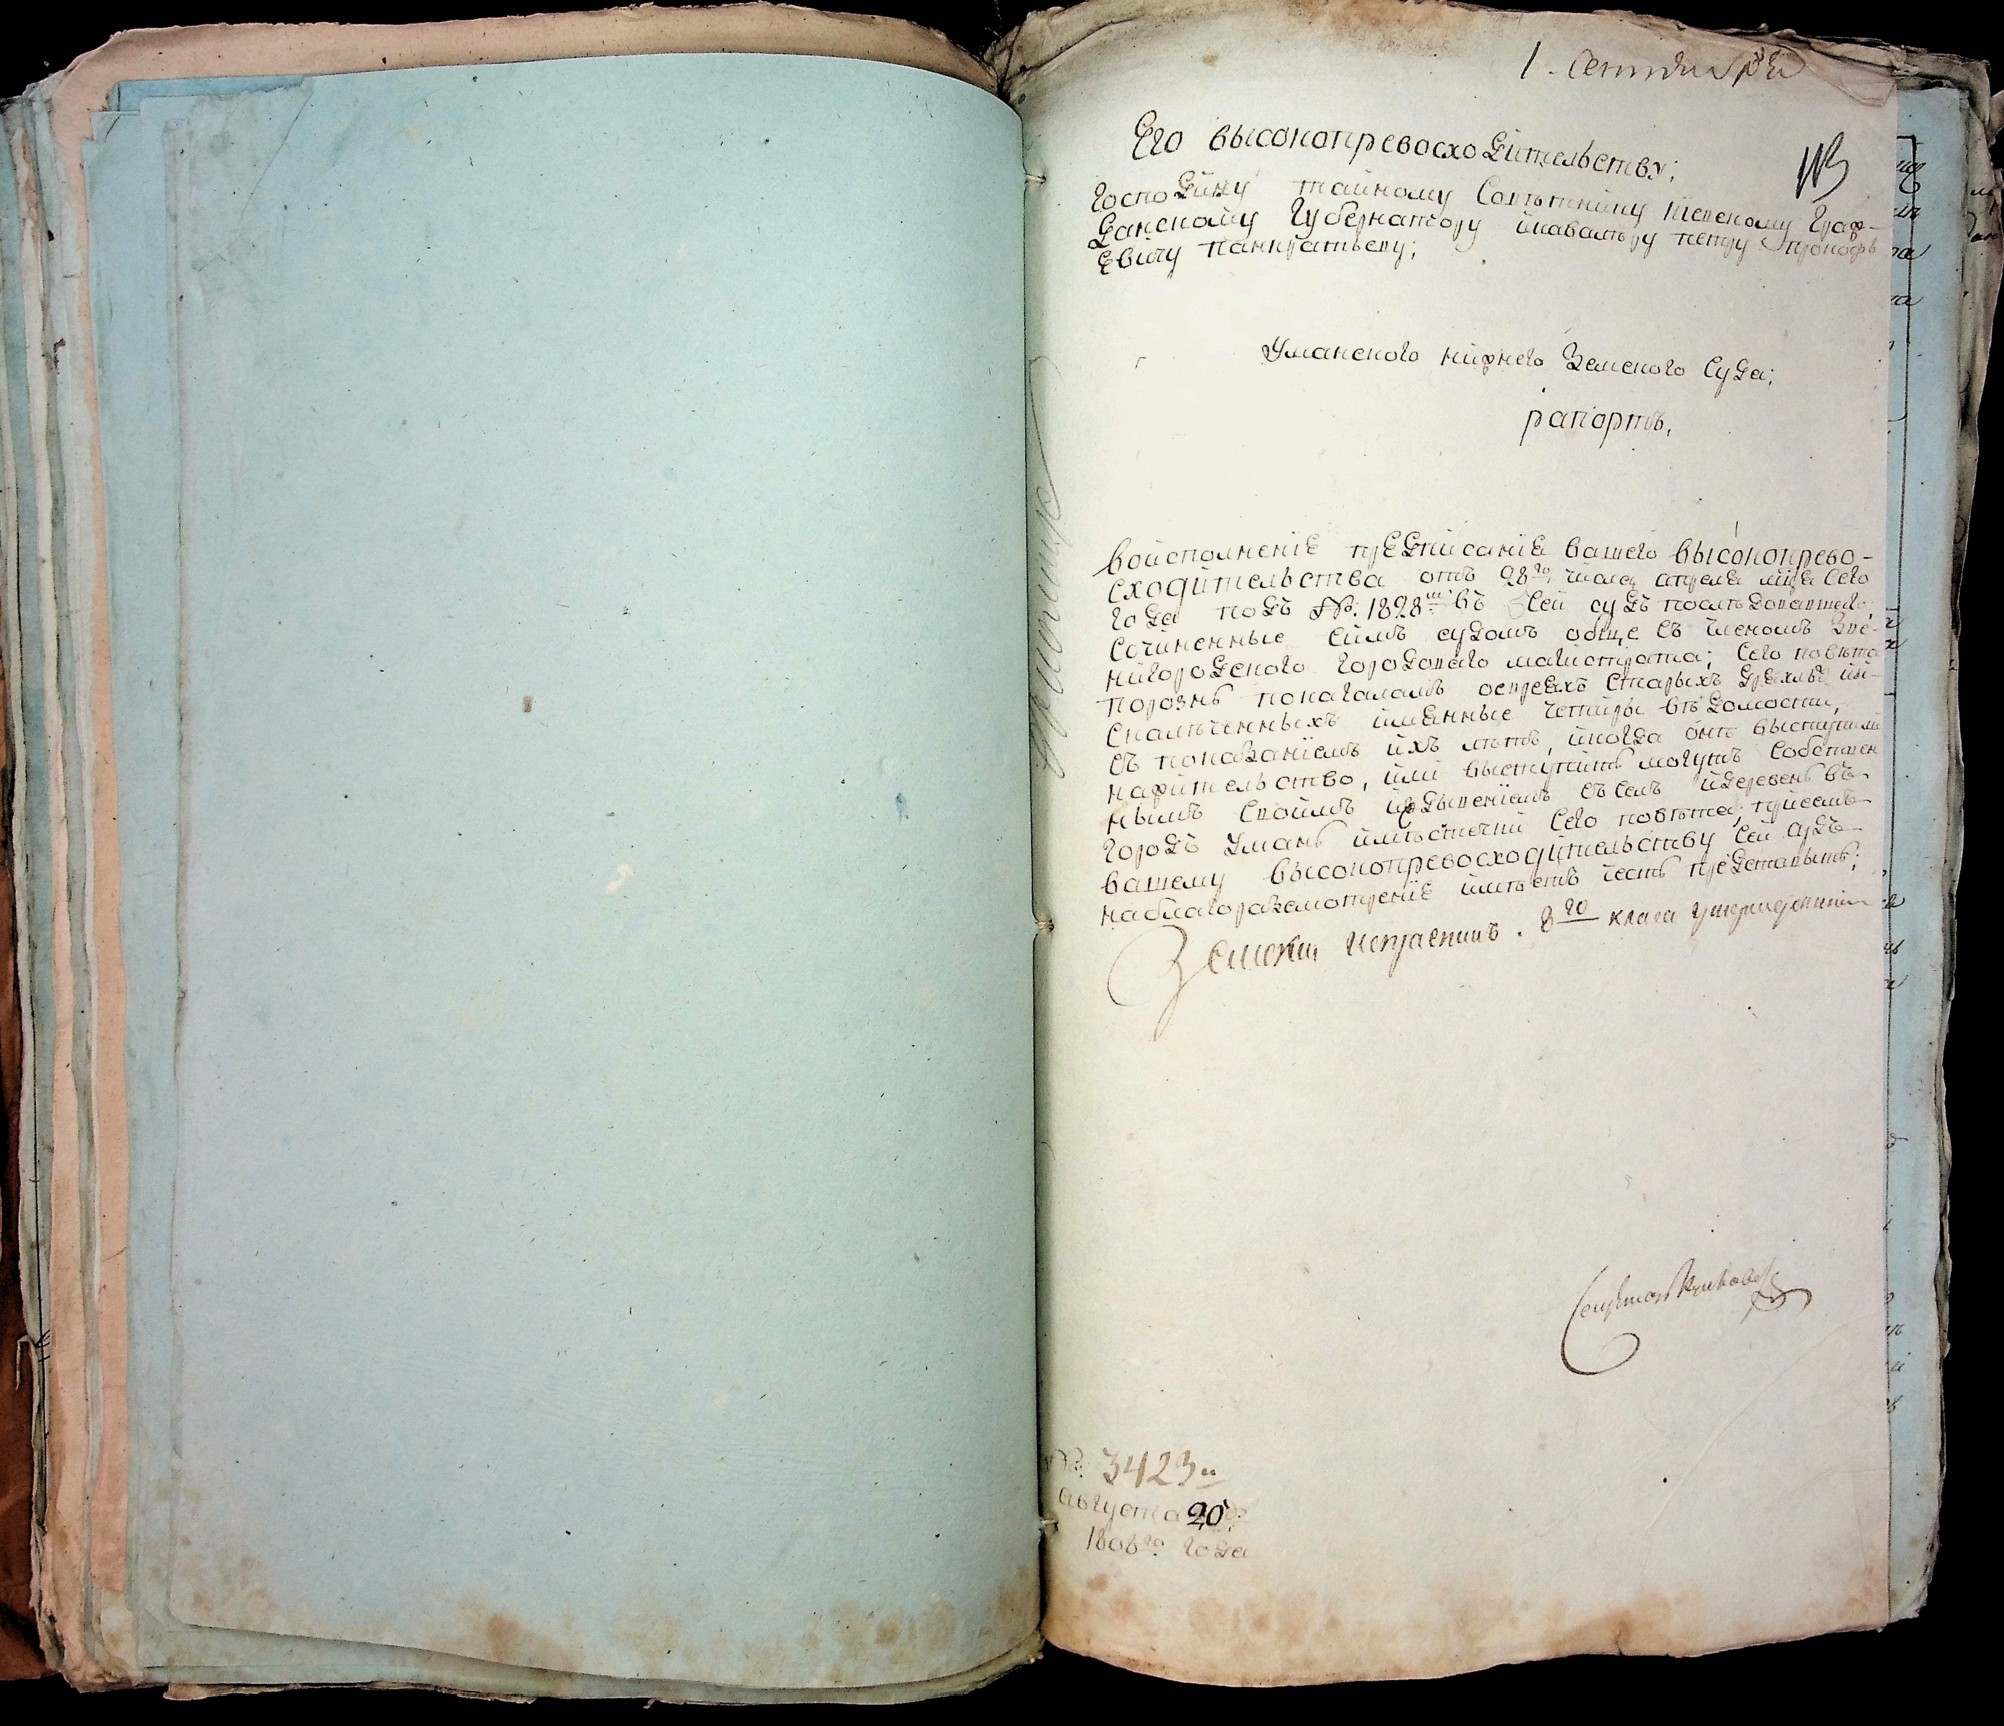 1. Сентября
Его высокопревосходительству;
Господину тайному Советнику Киевскому Граж-
данскому Губернатору икавалеру петру прокофь
Евичу панкратьеву;
Уманского нижнего Земского Суда;
рапортъ,
воисполнение предписания вашего высокопрево-
сходительства отъ 28го. числа апреля мца сего
года подъ №: 1828мъ въ Сей судъ последовавшего,
Сочиненные симъ судомъ обще съ членомъ Зве-
нигородского городоваго магистрата; Сего повета
порознь покагаламъ оевреяхъ Старыхъ дряхлыхъ ий-
скалеченныхъ имянные четыры ведомости,
съ показаниемъ ихъ летъ, икогда онъ выступили
нажительство, или выступить могутъ Собствен
нымъ Своимъ иждывениемъ съ селъ идеревень въ
городъ Умань иместечки Сего повета; присемъ
вашему высокопревосходительству Сей судъ
наблагоразсмотрение имеетъ честь представить;
Земский исправникъ. 8го класа
№: 3423й
августа 20 д:
1808го года